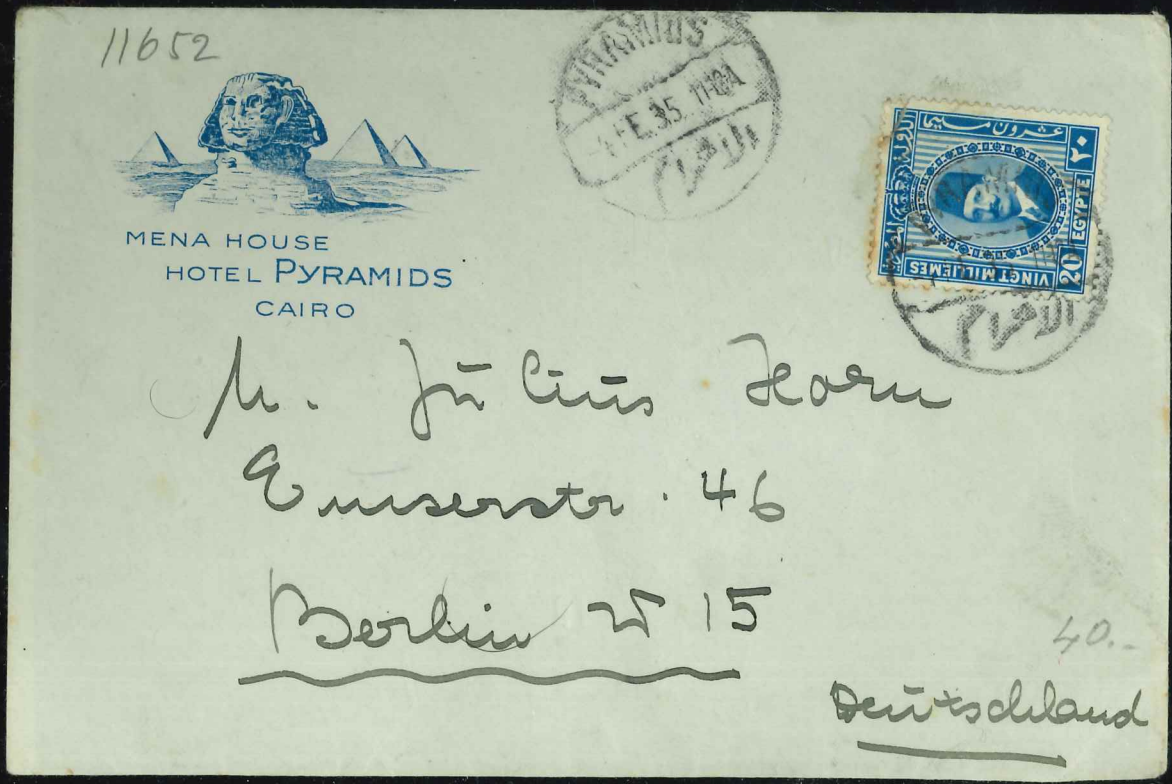 11652
MENA HOUSE
HOTEL PYRAMIDS
CAIRO
PYRAMIDS
-4.FE.35.
الاهرام
عشرون مليما
٢٠
الدولة المصرية
VINGT MILLIEMES
20 EGYPTE
الاهرام
M. Julius Horn
Emserstr. 46
Berlin W 15
40.-
Deutschland